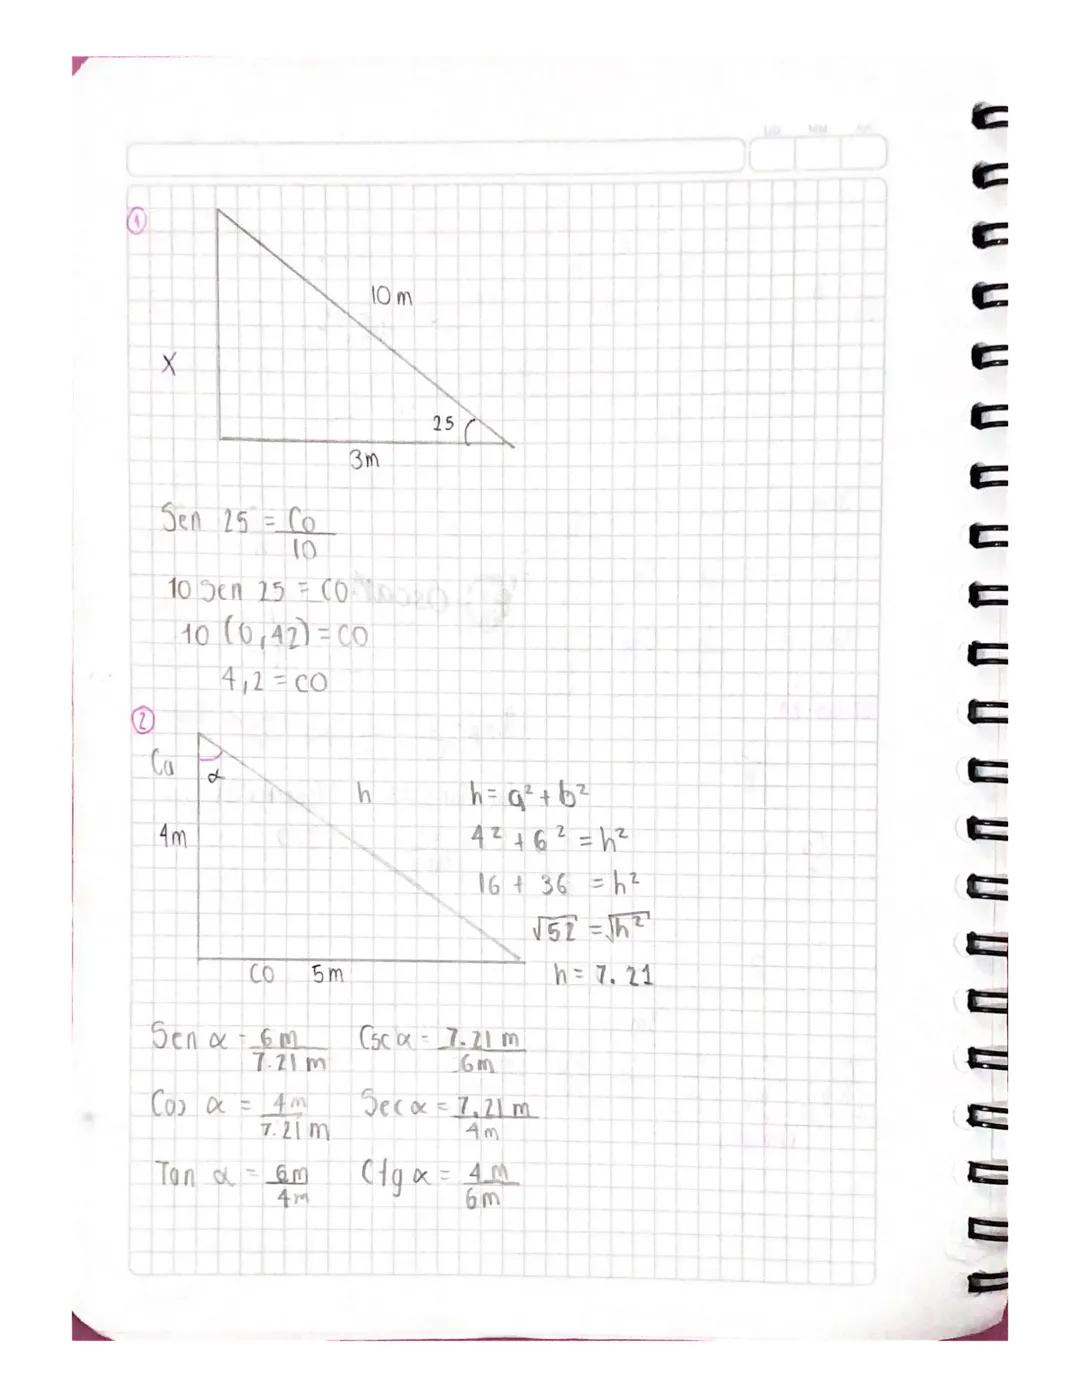 DD MM AA
1
10 m
X
25
3m
Sen 25 = Co
10
10 Sen 25 = CO
10 (0,42) = CO
4,2 = CO
2
Ca
α
h
h = a² + b²
4m
4² + 6² = h²
16 + 36 = h²
√52 = √h²
CO 5m
h = 7.21
Sen α = 6m
7.21 m
Csc α = 7.21 m
6m
Cos α = 4m
7.21 m
Sec α = 7,21 m
4m
Tan α = 6m
4m
Ctg α = 4m
6m